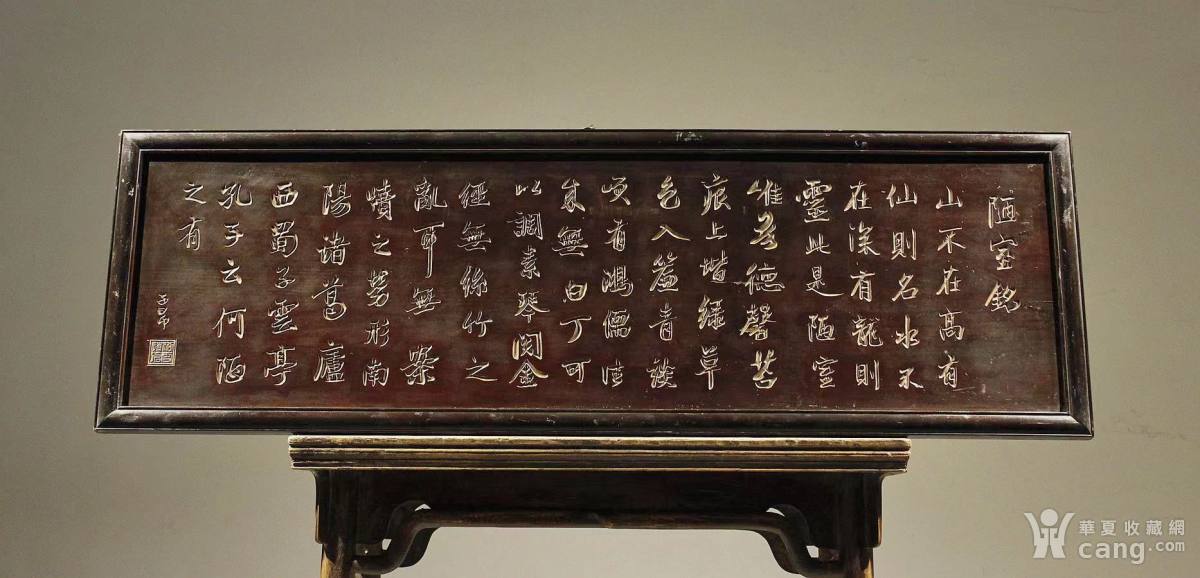 陋室銘
山不在高有
仙則名水不
在深有龍則
靈此是陋室
惟吾德馨苔
痕上堦綠草
色入簾青談
笑有鴻儒往
來無白丁可
以調素琴閱金
經無絲竹之
亂耳無案
牘之勞形南
陽諸葛廬
西蜀子雲亭
孔子云何陋
之有
子昂
華夏收藏網
cang.com